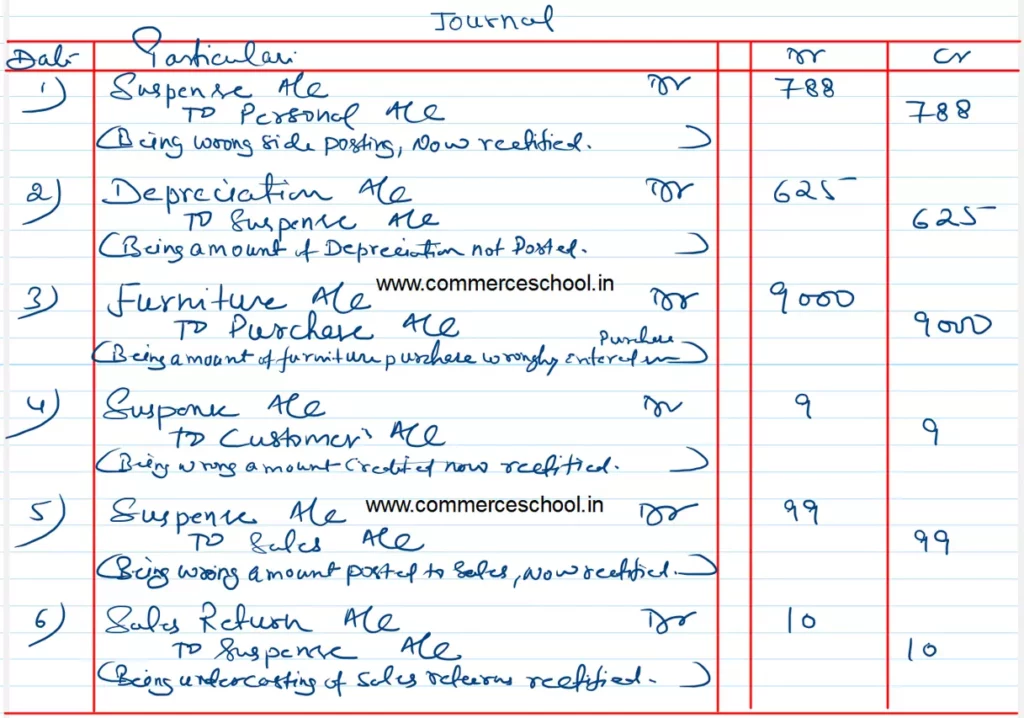 Journal
Date Particulars Dr Cr
1) Suspense A/c Dr 788
To Personal A/c 788
(Being wrong side posting, Now rectified. )
2) Depreciation A/c Dr 625
To Suspense A/c 625
(Being amount of Depreciation not Posted. )
www.commerceschool.in
3) Furniture A/c Dr 9000
To Purchase A/c 9000
Purchase
(Being amount of furniture purchase wrongly entered in )
4) Suspense A/c Dr 9
To Customer's A/c 9
(Being wrong amount credited now rectified. )
www.commerceschool.in
5) Suspense A/c Dr 99
To Sales A/c 99
(Being wrong amount posted to Sales, Now rectified. )
6) Sales Return A/c Dr 10
To Suspense A/c 10
(Being undercasting of Sales returns rectified. )